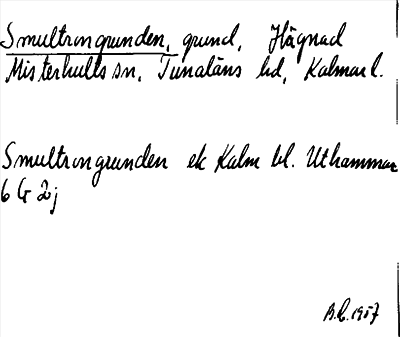 Smultrongrunden, grund, Hägnad
Misterhults sn, Tunaläns hd, Kalmar l.
Smultrongrunden ek Kalm bl. Uthammar
6 G 2j
B.L. 1957